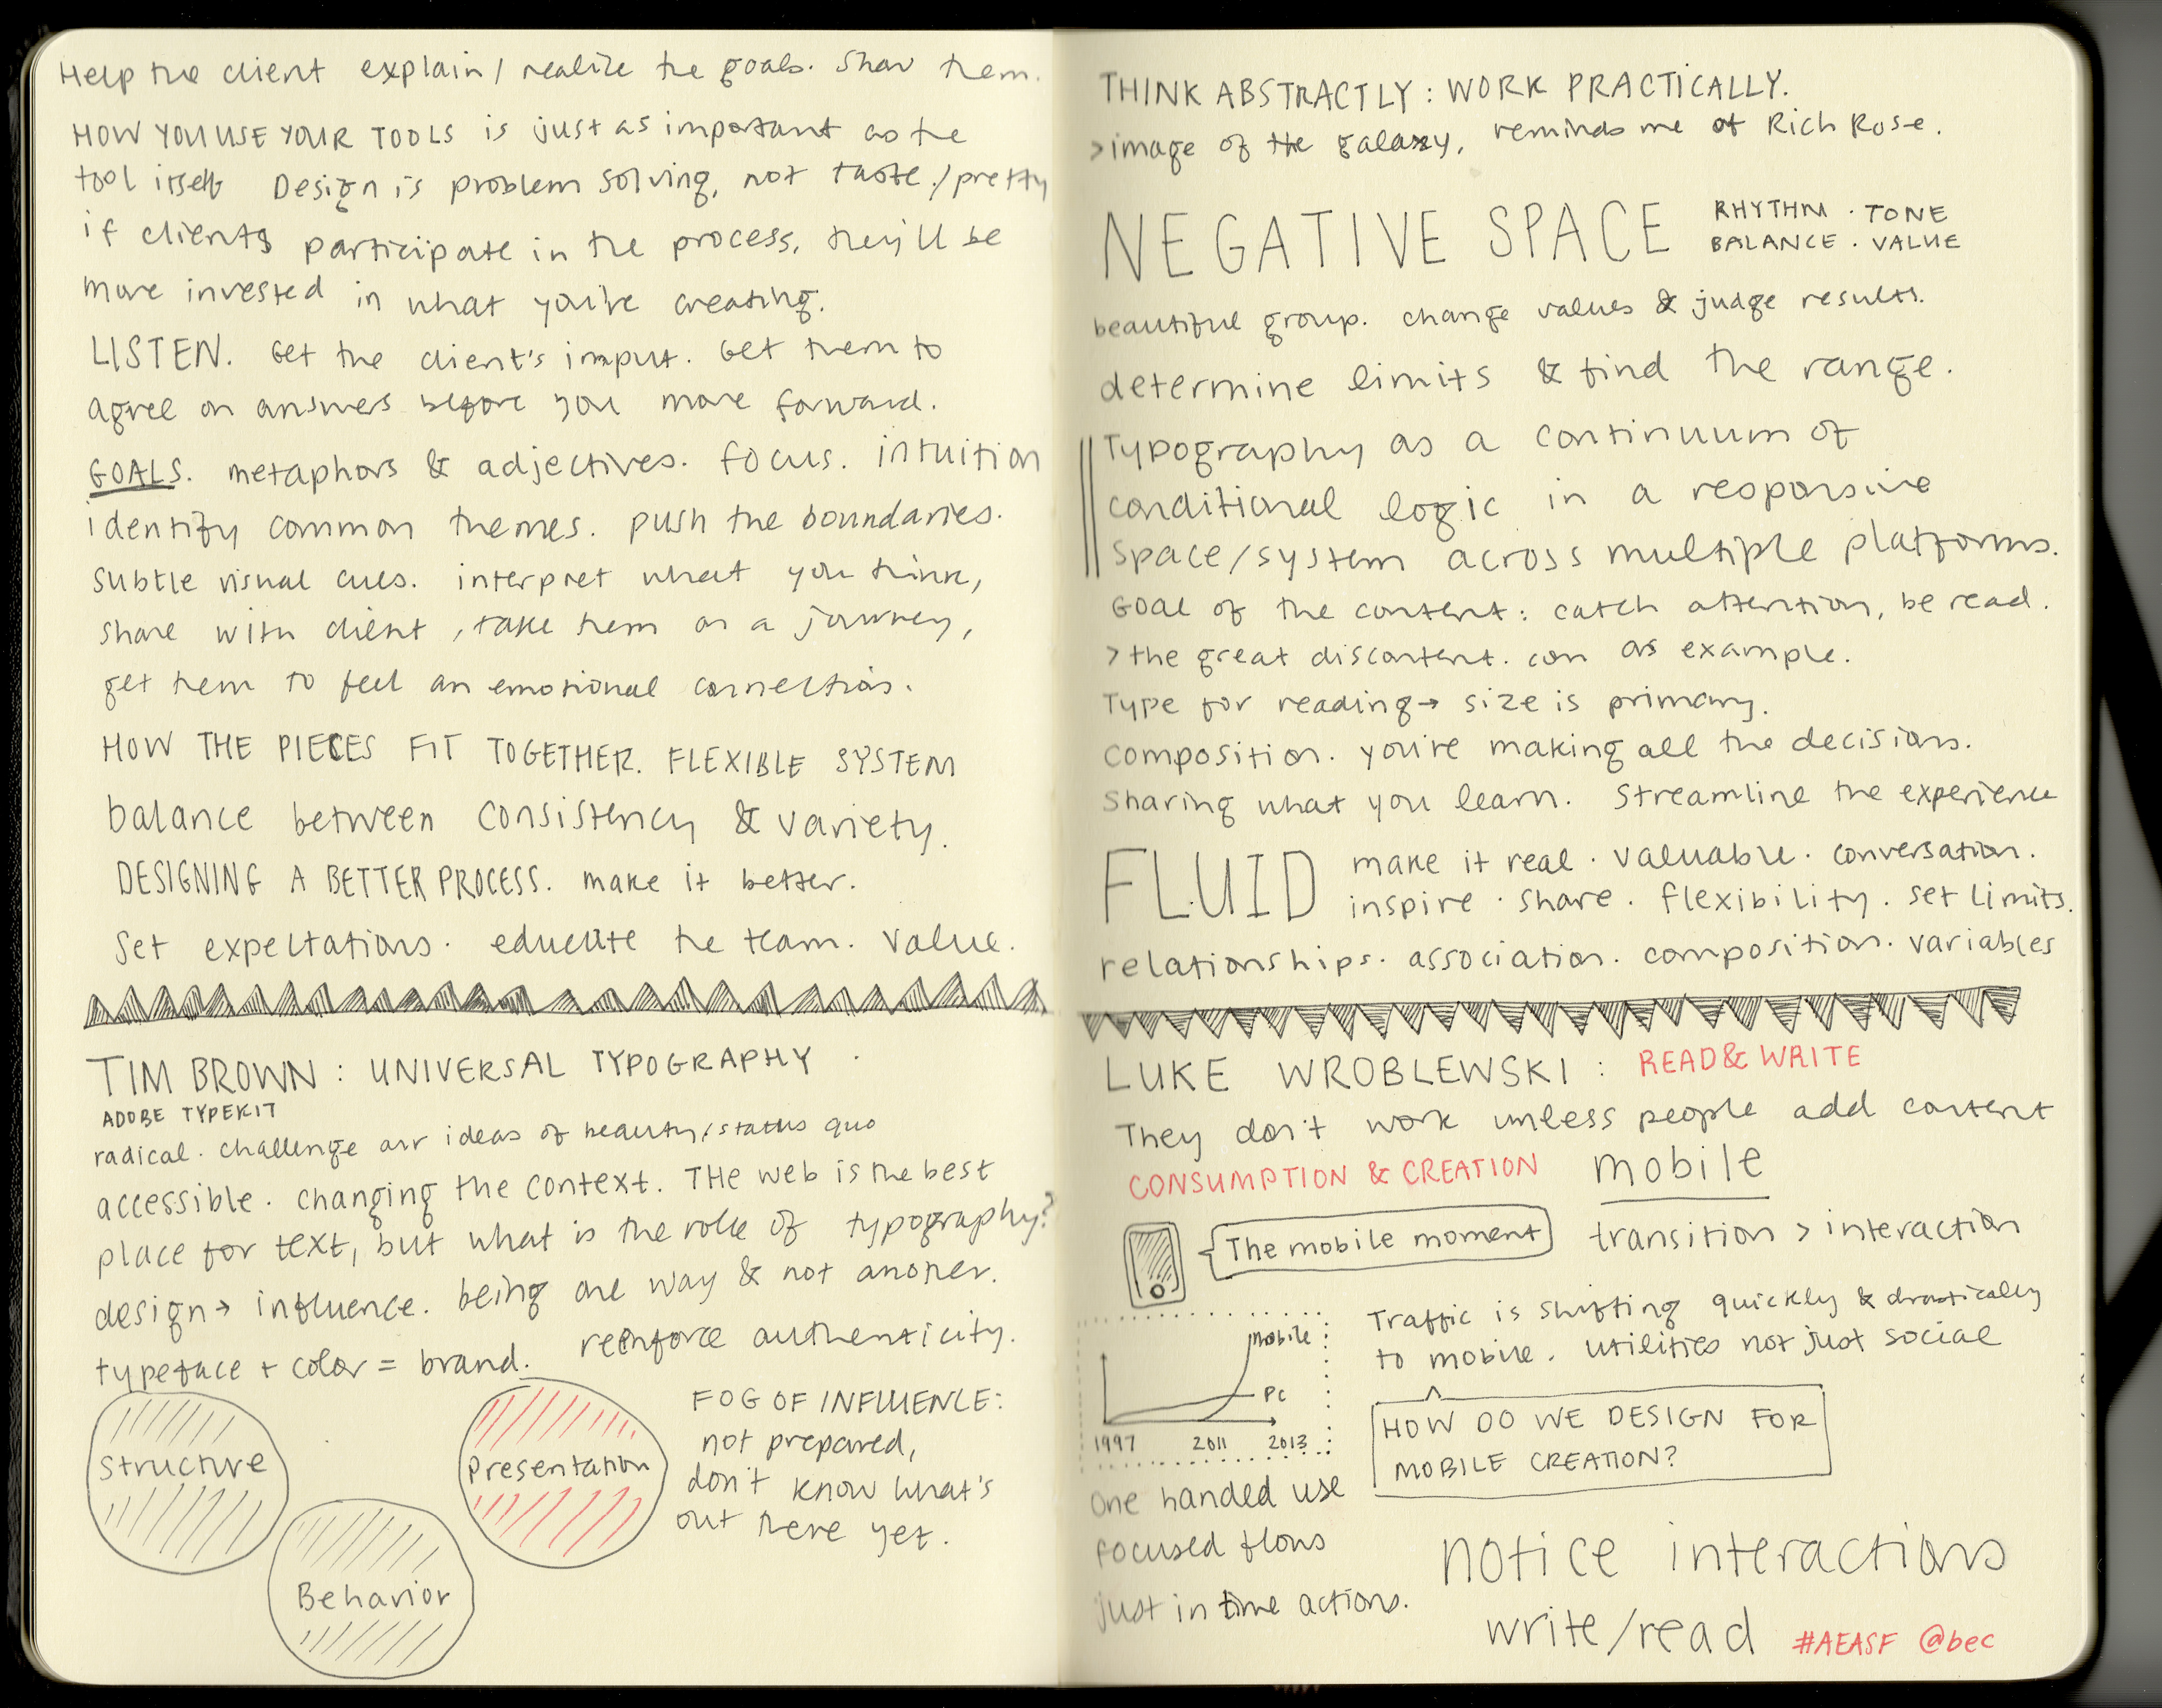 Help the client explain/realize the goals. Show them.
HOW YOU USE YOUR TOOLS is just as important as the
tool itself Design is problem solving, not taste/pretty
if clients participate in the process, they'll be
more invested in what you're creating.
LISTEN. Get the client's input. Get them to
agree on answers before you move forward.
GOALS. metaphors & adjectives. focus. intuition
identify common themes. push the boundaries.
subtle visual cues. interpret what you think,
share with client, take them on a journey,
get them to feel an emotional connection.
HOW THE PIECES FIT TOGETHER. FLEXIBLE SYSTEM
balance between consistency & variety.
DESIGNING A BETTER PROCESS. make it better.
Set expectations. educate the team. value.
TIM BROWN: UNIVERSAL TYPOGRAPHY
ADOBE TYPEKIT
radical. challenge our ideas of beauty/status quo
accessible. changing the context. THe web is the best
place for text, but what is the role of typography?
design→ influence. being one way & not another.
typeface + color = brand. reinforce authenticity.
Structure
Presentation
Behavior
FOG OF INFLUENCE:
not prepared,
don't know what's
out there yet.
THINK ABSTRACTLY: WORK PRACTICALLY.
>image of the galaxy, reminds me of Rich Rose.
NEGATIVE SPACE
RHYTHM · TONE
BALANCE · VALUE
beautiful group. change values & judge results.
determine limits & find the range.
Typography as a continuum of
conditional logic in a responsive
space/system across multiple platforms.
Goal of the content: catch attention, be read.
>the great discontent. com as example.
Type for reading→ size is primary.
composition. you're making all the decisions.
Sharing what you learn. Streamline the experience
FLUID
make it real · valuable · conversation.
inspire · share · flexibility. set limits.
relationships. association. composition. variables
LUKE WROBLEWSKI: READ & WRITE
They don't work unless people add content
CONSUMPTION & CREATION mobile
The mobile moment transition > interaction
Traffic is shifting quickly & drastically
to mobile. utilities not just social
mobile
PC
1997 2011 2013
HOW DO WE DESIGN FOR
MOBILE CREATION?
One handed use
focused flows
just in time actions.
notice interactions
write/read #AEASF @bec